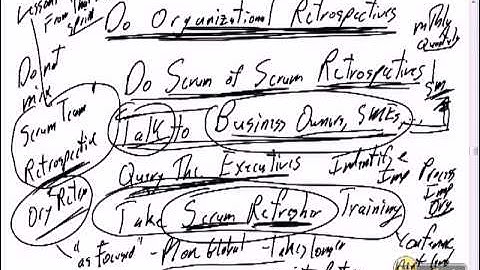 Lessons
From That
sprint
Do Organizational Retrospectives
Monthly
Quarterly
Do not
mix
Do Scrum of Scrum Retrospectives
SM
Scrum Team
Retrospective
Talk to Business Owners, SMEs,
Query The Executives
Identify
Imp Process
Imp
Org
Org Retro
Take Scrum Refresher Training
"as focused" - More Global - Takes longer